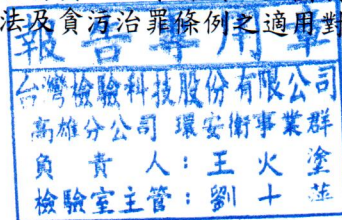 法及貪污治罪條例之適用對
報告專用章
台灣檢驗科技股份有限公司
高雄分公司 環安衛事業群
負責人：王火塗
檢驗室主管：劉十蓮